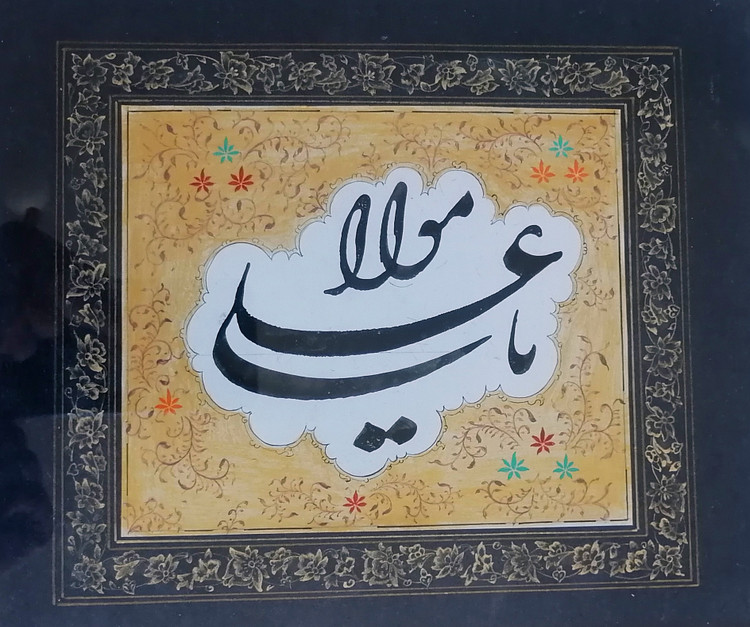 یا مولا علی